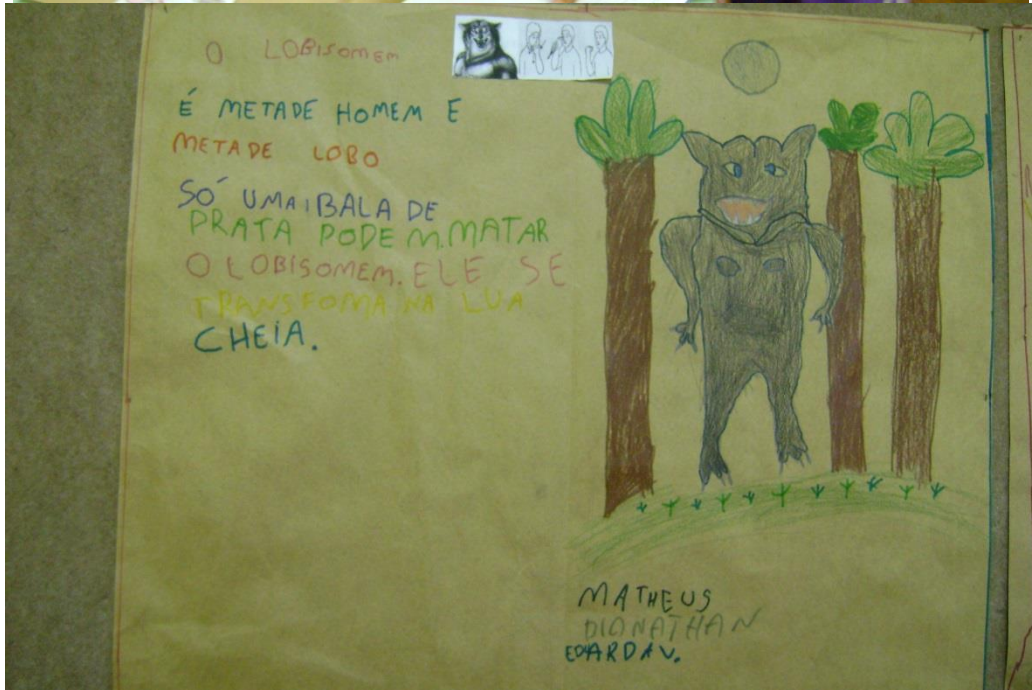 O LOBISOMEM
É METADE HOMEM E
METADE LOBO
SÓ UMA BALA DE
PRATA PODE M.MATAR
O LOBISOMEM. ELE SE
TRANSFOMA NA LUA
CHEIA.
MATHEUS
DIANATHAN
EDUARDA V.